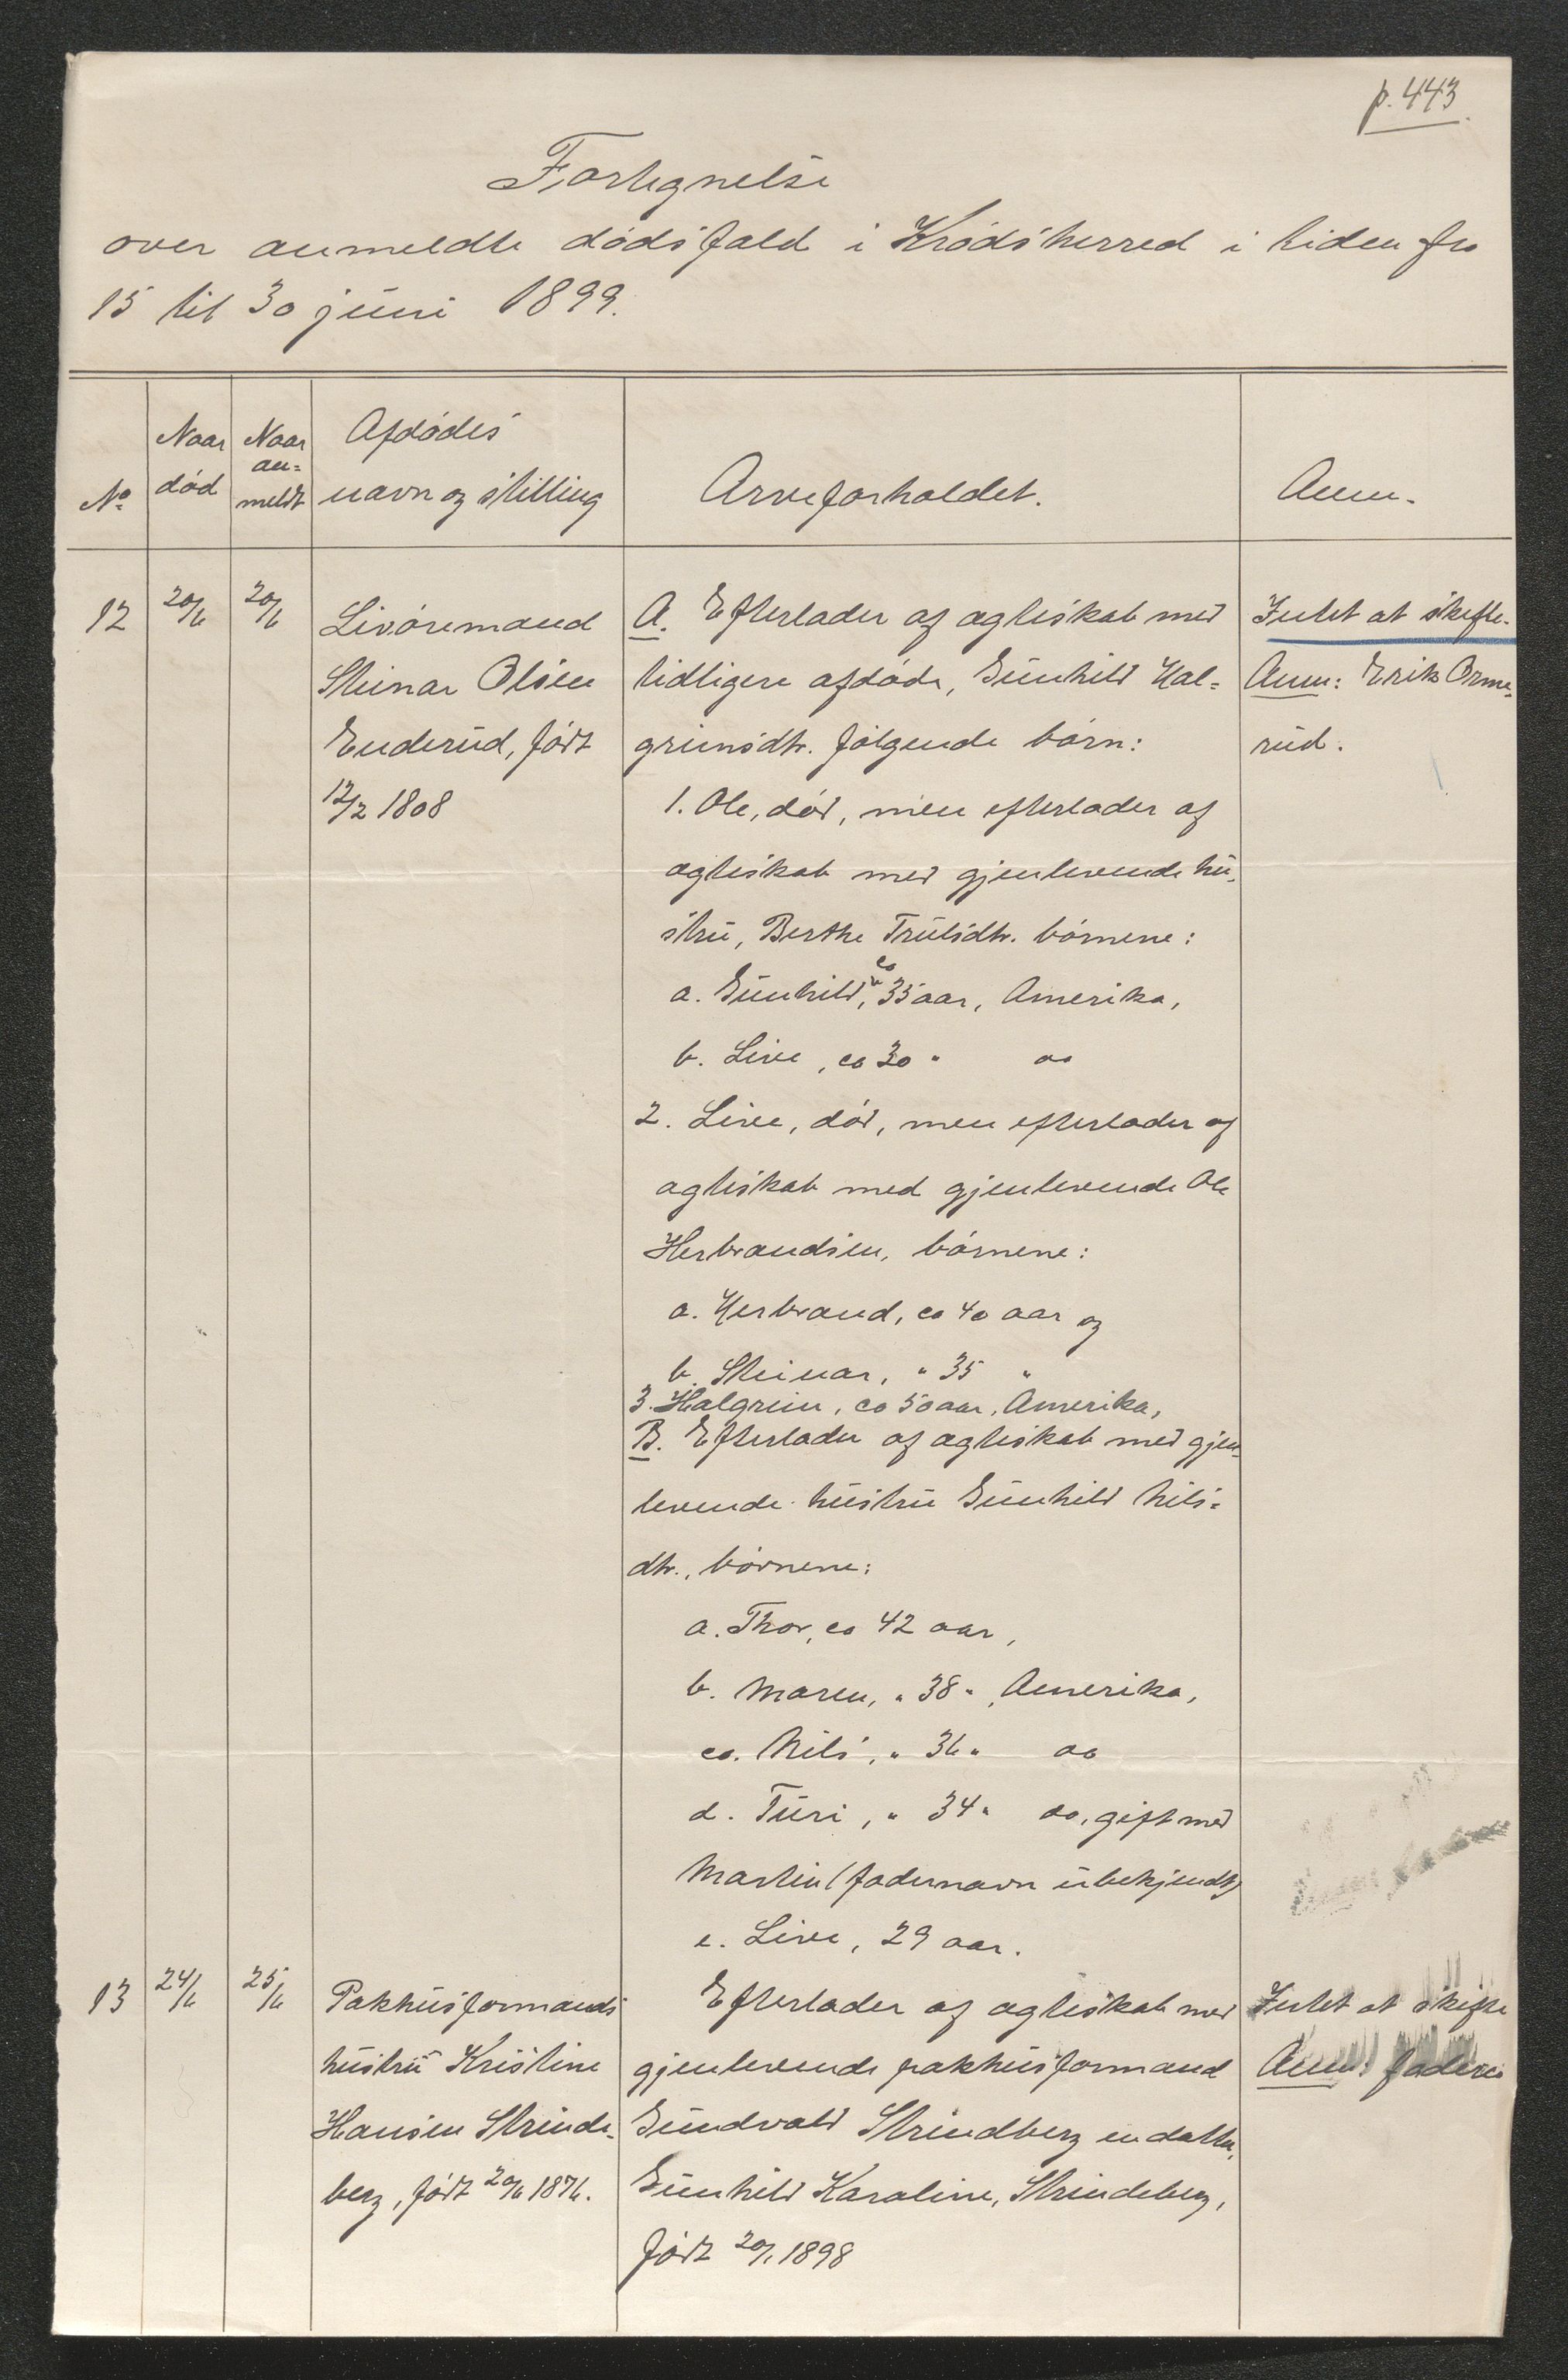 p. 443.
Fortegnelse
over anmeldte dødsfald i Krødsherred i tiden fra
15 til 30 juni 1899.
No
Naar død
Naar an-meldt
Afdødes navn og stilling
Arveforholdet.
Anm.
12
20/6
20/6
Livøremand
Steinar Olsen
Enderud, født
12/2 1808
A. Efterlader af ægteskab med
tidligere afdøde, Gunhild Hal-
grimsdtr. følgende børn:
1. Ole, død, men efterlader af
ægteskab med gjenlevende hu-
stru, Berthe Trulsdtr. børnene:
a. Gunhild, ca 35 aar, Amerika,
b. Live, ca 30 " do
2. Live, død, men efterlader af
ægteskab med gjenlevende Ole
Herbrandsen, børnene:
a. Herbrand, ca 40 aar og
b. Steinar, " 35 "
3. Halgrim, ca 50 aar, Amerika,
B. Efterlader af ægteskab med gjen-
levende hustru Gunhild Nils-
dtr., børnene:
a. Thor, ca 42 aar,
b. Maren, " 38 ", Amerika,
c. Nils, " 36 " do
d. Turi, " 34 " do, gift med
Martin (fadernavn ubekjendt)
e. Live, 29 aar.
Intet at skifte.
Anm: Erik Orme-
rud.
13
24/6
25/6
Pakhusformands
hustru Kristine
Hansen Strinde-
berg, født 20/6 1876.
Efterlader af ægteskab med
gjenlevende pakhusformand
Gundvald Strindberg en datter,
Gunhild Karoline, Strindeberg,
født 20/1 1898
Intet at skifte
Anm: faderen